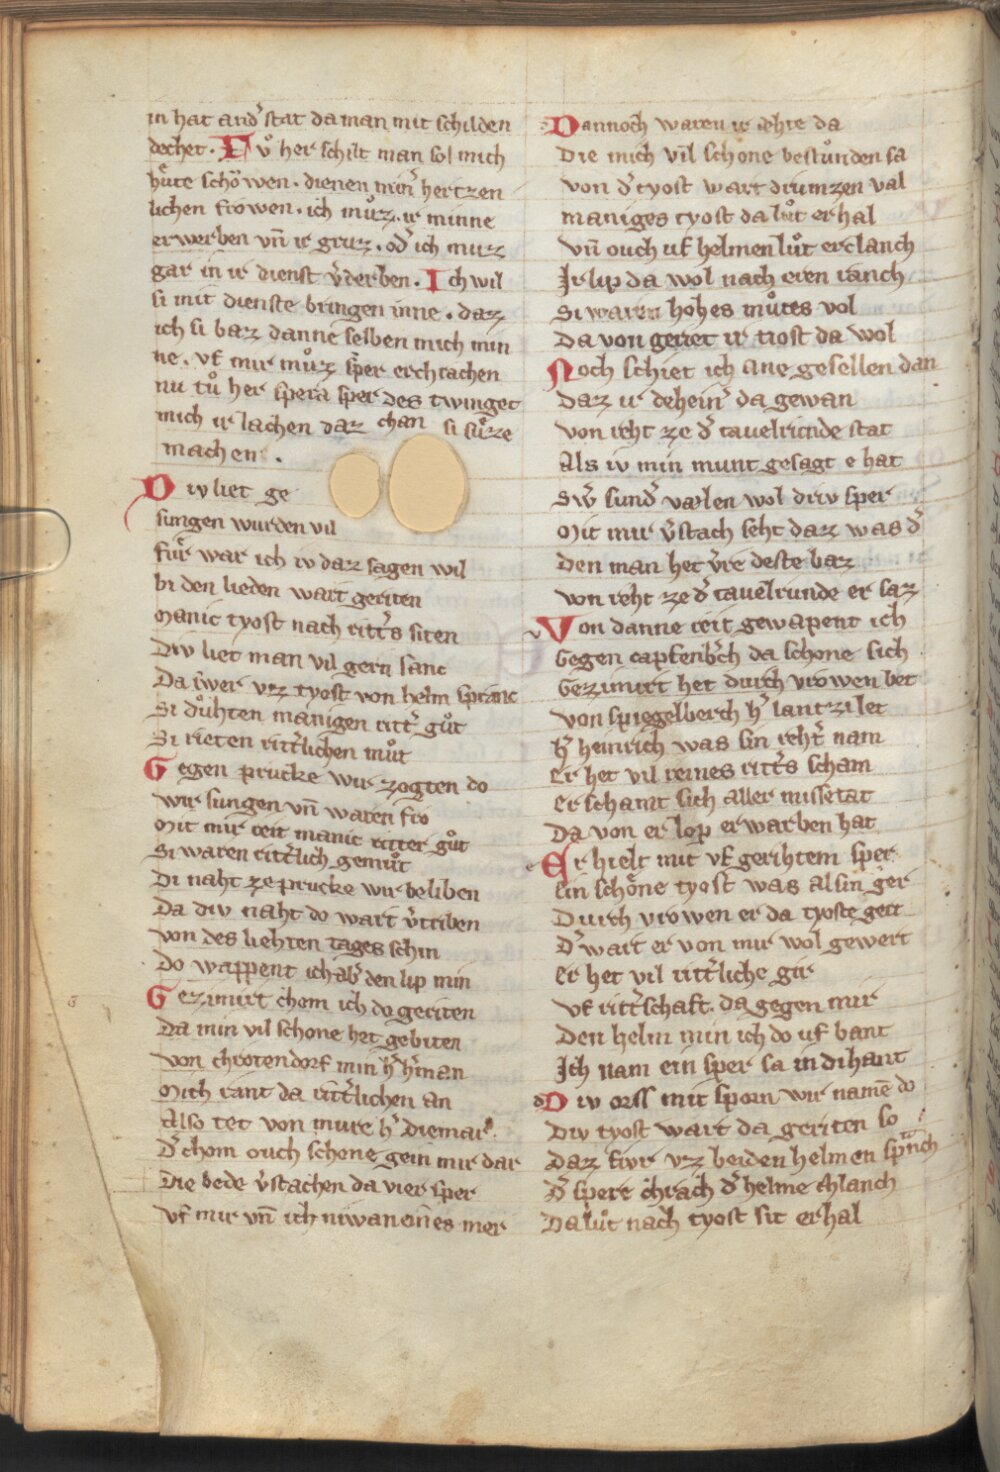 in hat and̾ stat da man mit schilden
dechet. Fuͦ her schilt man sol mich
huͤte schoͤwen. dienen min̾ hertzen
lichen frowen. ich muͦz. ir minne
erwerben vn̄ ir gruz. od̾ ich muz
gar in ir dienst v̾derben. Ich wil
si mit dienste bringen inne. daz
ich si baz danne selben mich min
ne. vf mir muͦz sper erchrachen
nu tuͦ her spera sper des twinget
mich ir lachen daz chan si suͤze
machen.
Div liet ge
sungen wurden vil
fuͤr war ich iv daz sagen wil
bi den lieden wart geriten
Manic tyost nach ritt̾s siten
Div liet man vil gern sanc
Da viwer vz tyost von helm spranc
Si duͦhten manigen ritt̾ guͦt
Si rieten ritt̾lichen muͦt
Gegen prucke wir zogten do
wir sungen vn̄ waren fro
Mit mir reit manic ritter guͦt
Si waren ritt̾lich gemuͦt
Di naht ze prucke wir beliben
Da div naht do wart v̾triben
von des liehten tages schin
Do wappent ich ab̾ den lip min
Gezimirt chom ich do geriten
Da min vil schone het gebiten
von chrotendorf min h̾ h̾man
Mich rant da ritt̾lichen an
Also tet von mure h̾ Diemar.
D̾ chom ouch schone gein mir dar
Die bede v̾stachen da vier sper
Vf mir vn̄ ich niwan eines mer
Dannoch waren ir ehte da
Die mich vil schone bestuͦnden sa
von d̾ tyost wart drumzen val
maniges tyost da luͦt erhal
vn̄ ouch uf helmen luͦt erclanch
Ir lip da wol nach eren ranch
Si waren hohes muͦtes vol
Da von geriet ir tiost da wol
Noch schiet ich ane gesellen dan
Daz ir dehein̾ da gewan
von reht ze d̾ tauelrunde stat
Als iv min munt gesagt e hat
Sw̾ sund̾ vælen wol driv sper
Mit mir v̾stach seht daz was d̾
Den man het v̾re deste baz
von reht ze d̾ tauelrunde er saz
Von danne reit gewapent ich
Gegen capfenb̾ch da schone sich
Gezimirt het durch vrowen bet
von spiegelberch h̾ lantzilet
h̾ heinrich was sin reht̾ nam
Er het vil reines ritt̾s scham
Er schamt sich aller missetat
Da von er lop erwarben hat
Er hielt mit vf gerihtem sper
ein schoͤne tyost was al sin ger
Durch vrowen er da tyoste gert
D̾ wart er von mir wol gewert
er het vil ritt̾liche gir
vf ritt̾schaft. da gegen mir
Den helm min ich do uf bant
Ich nam ein sper sa in di hant
Div orss mit sporn wir namē do
Div tyost wart da geriten so
Daz fivr vz beiden helmen
D̾ spere chrach d̾ helme chlanch
Da luͦt nach tyost sit erhal